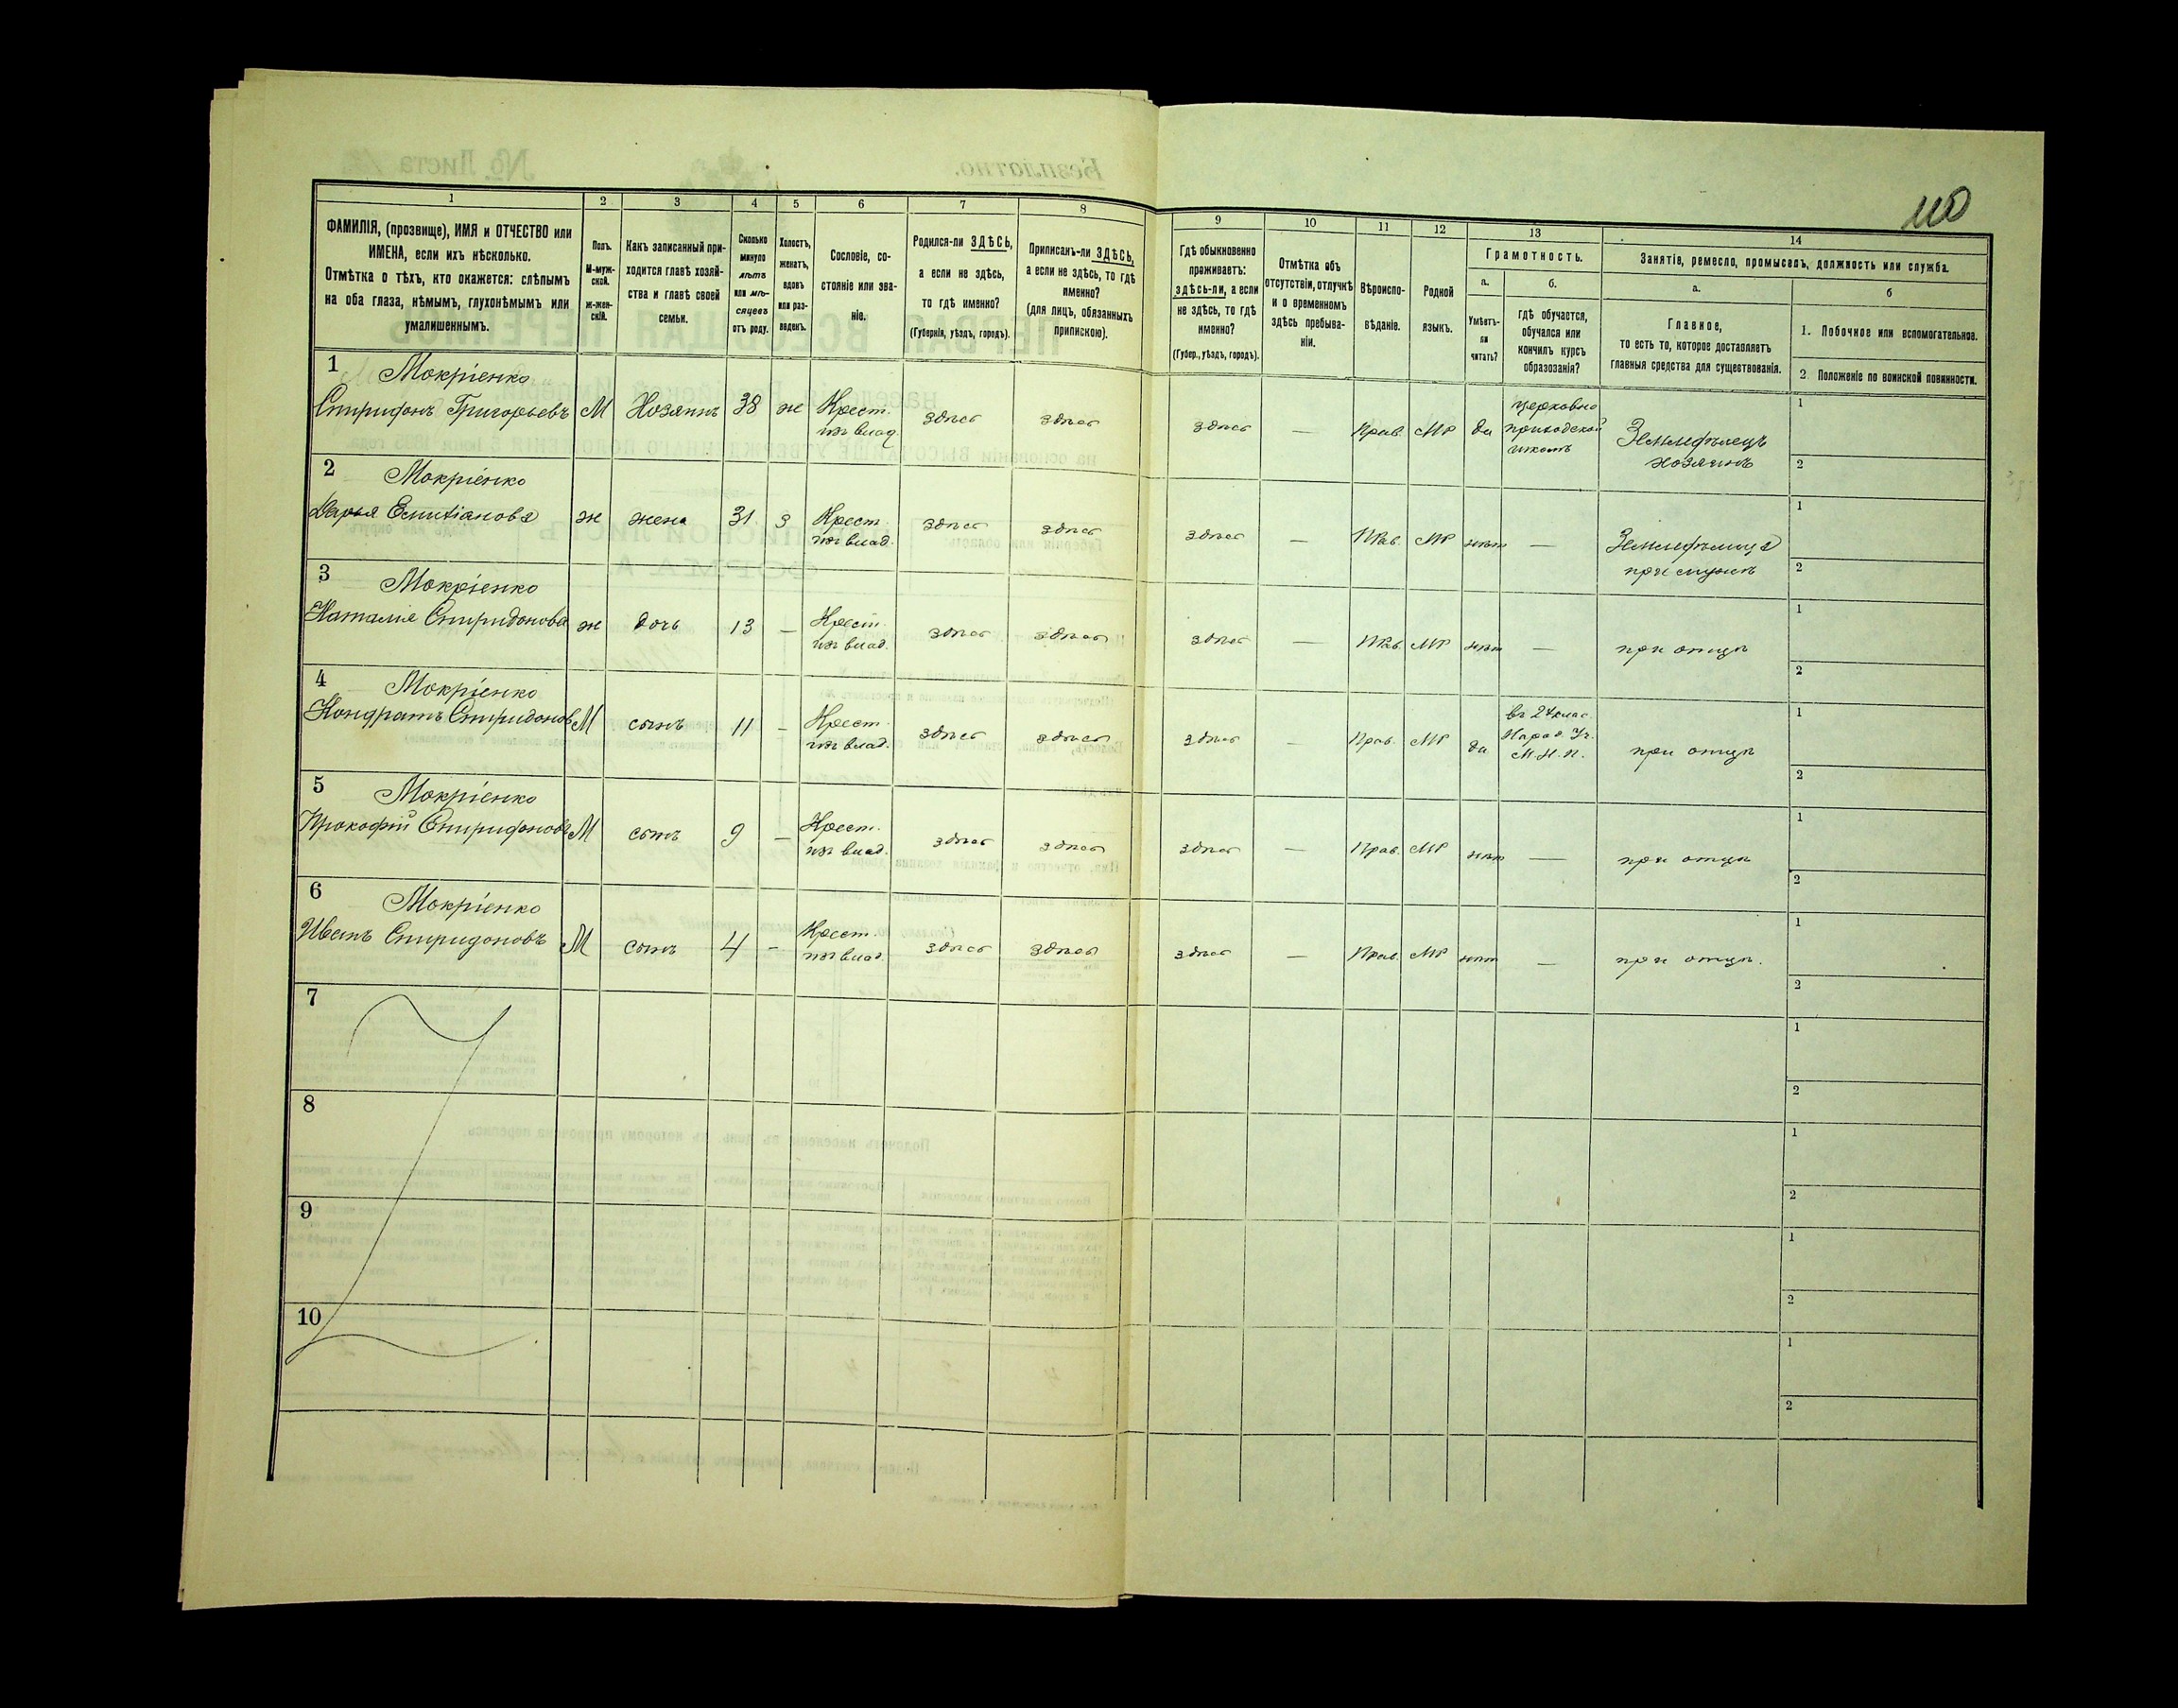 110
1
2
3
4
5
6
7
8
9
10
11
12
13
14
ФАМИЛІЯ, (прозвище), ИМЯ и ОТЧЕСТВО или
ИМЕНА, если ихъ нѣсколько.
Отмѣтка о тѣхъ, кто окажется: слѣпымъ
на оба глаза, нѣмымъ, глухонѣмымъ или
умалишеннымъ.
Полъ.
М-муж-
ской.
ж-жен-
скій.
Какъ записанный при-
ходится главѣ хозяй-
ства и главѣ своей
семьи.
Сколько
минуло
лѣтъ
или мѣ-
сяцевъ
отъ роду.
Холостъ,
женатъ,
вдовъ
или раз-
веденъ.
Сословіе, со-
стояніе или зва-
ніе.
Родился-ли ЗДѢСЬ,
а если не здѣсь,
то гдѣ именно?
(Губернія, уѣздъ, городъ).
Приписанъ-ли ЗДѢСЬ,
а если не здѣсь, то гдѣ
именно?
(для лицъ, обязанныхъ
припискою).
Гдѣ обыкновенно
проживаетъ:
здѣсь-ли, а если
не здѣсь, то гдѣ
именно?
(Губер., уѣздъ, городъ).
Отмѣтка объ
отсутствіи, отлучкѣ
и о временномъ
здѣсь пребыва-
ніи.
Вѣроиспо-
вѣданіе.
Родной
языкъ.
Грамотность.
а.
Умѣетъ-
ли
читать?
б.
гдѣ обучается,
обучался или
кончилъ курсъ
образованія?
Занятіе, ремесло, промыселъ, должность или служба.
а.
Главное,
то есть то, которое доставляетъ
главныя средства для существованія.
б
1. Побочное или вспомогательное.
2 Положеніе по воинской повинности.
1 Мокріенко
Спиридонъ Григорьевъ М Хозяинъ 38 ж Крест. изъ влад. здѣсь здѣсь здѣсь — Прав. МР да церковно приходской школѣ Земледѣлецъ хозяинъ 1 2
2 Мокріенко
Дарья ж жена 31 З Крест. изъ влад. здѣсь здѣсь здѣсь — Прав. МР нѣт — при мужѣ 1 2
3 Мокріенко
Наталія Спиридонова ж дочь 13 — Крест. изъ влад. здѣсь здѣсь здѣсь — Прав. МР нѣт — при отцѣ 1 2
4 Мокріенко
Кондратъ Спиридонов М сынъ 11 — Крест. изъ влад. здѣсь здѣсь здѣсь — Прав. МР да Народ. Уч. М.Н.П. при отцѣ 1 2
5 Мокріенко
Прокофій Спиридоновъ М сынъ 9 — Крест. изъ влад. здѣсь здѣсь здѣсь — Прав. МР нѣт — при отцѣ 1 2
6 Мокріенко
Иванъ Спиридоновъ М сынъ 4 — Крест. изъ влад. здѣсь здѣсь здѣсь — Прав. МР нѣт — при отцѣ. 1 2
7 1 2
8 1 2
9 1 2
10 1 2